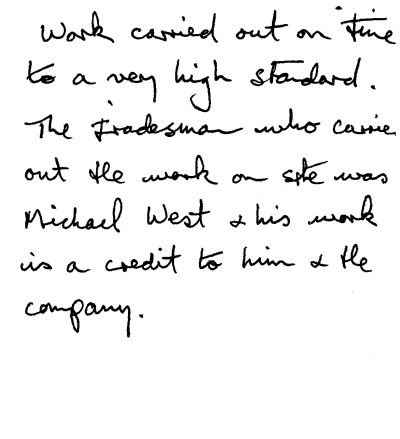 Work carried out on time
to a very high standard.
The Tradesman who carrie
out the work on site was
Michael West & his work
is a credit to him & the
company.